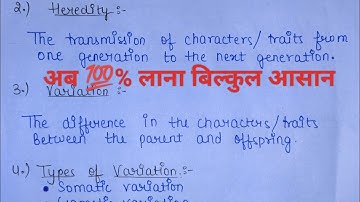 2.) Heredity :-
The transmission of characters/traits from
one generation to the next generation.
अब 💯% लाना बिल्कुल आसान
3.) Variation :-
The difference in the characters/traits
between the parent and offspring.
4.) Types of Variation :-
• Somatic variation
variation